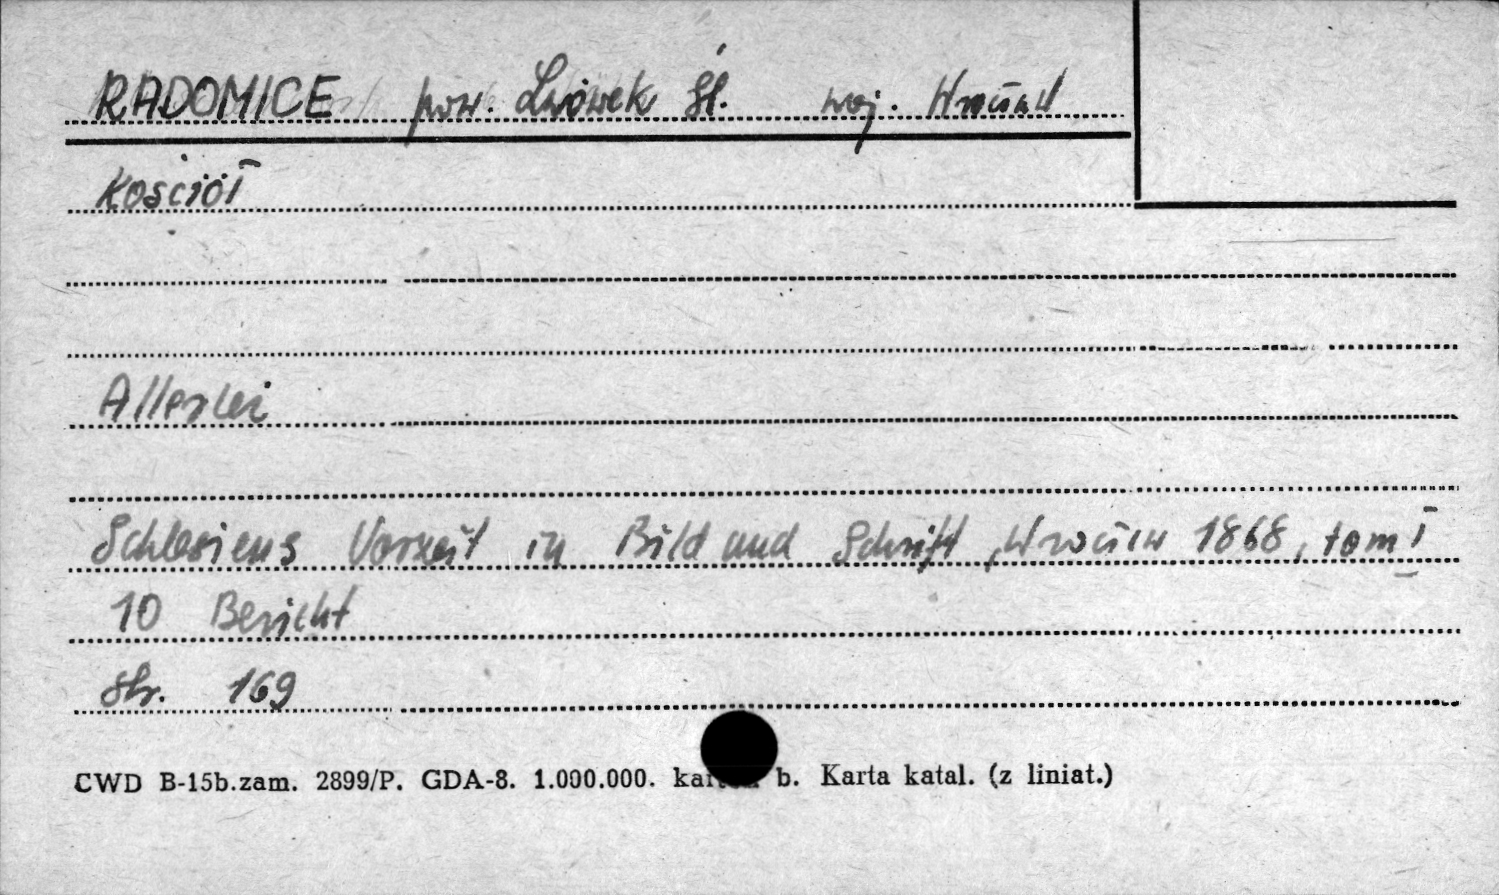 RADOMICE pow. Lwówek Śl. woj. Wrocław
Kościół
Allerlei
Schlesiens Vorzeit in Bild und Schrift, Wrocław 1868, tom I
10 Bericht
str. 169
CWD B-15b.zam. 2899/P. GDA-8. 1.000.000. b. Karta katal. (z liniat.)